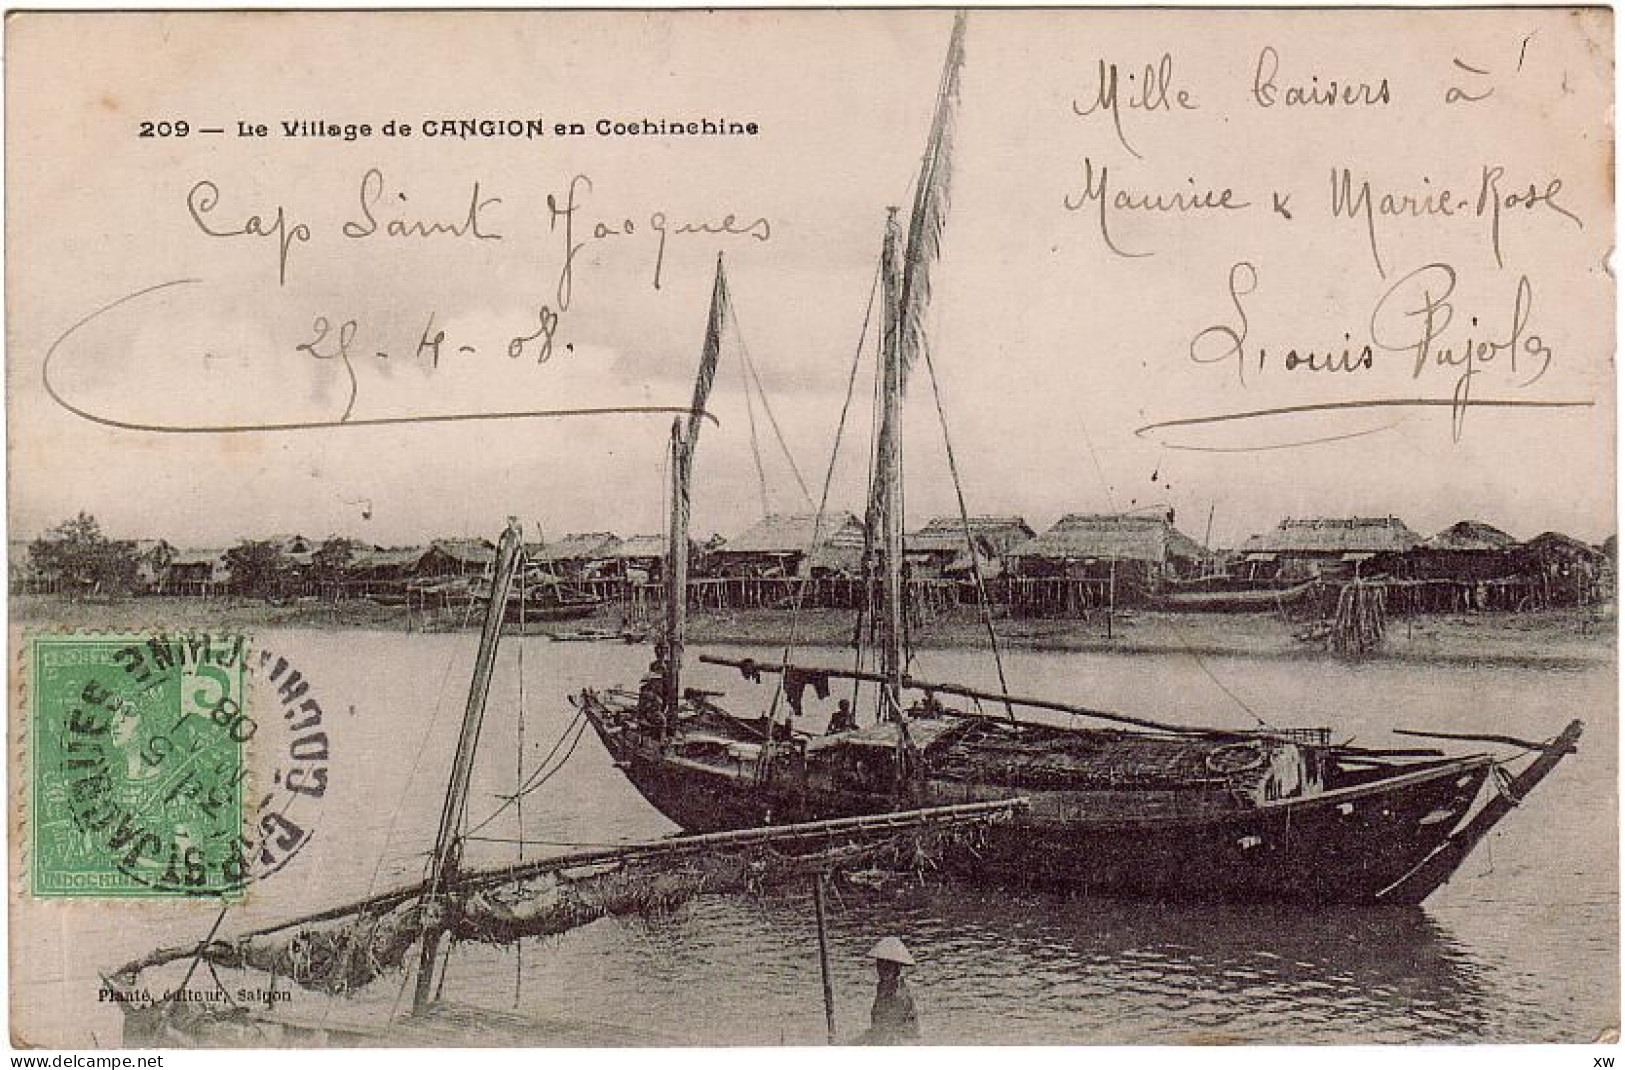 209 — Le Village de CANGION en Cochinchine
Cap Saint Jacques
25-4-08.
Mille baisers à
Maurice & Marie-Rose
Louis Pujols
5
INDOCHINE
CAP ST JACQUES COCHINCHINE
08
Planté, éditeur, Saigon
https://www.delcampe.net
xw